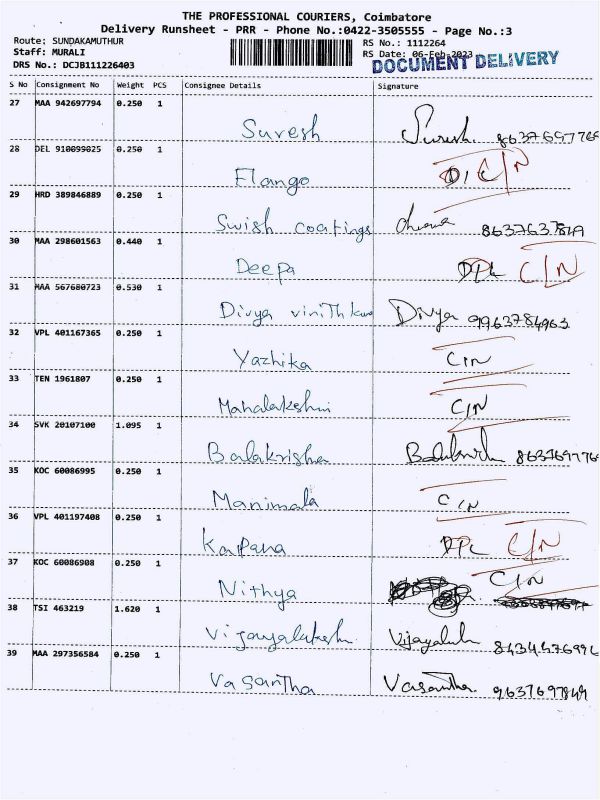 THE PROFESSIONAL COURIERS, Coimbatore
Delivery Runsheet - PRR - Phone No.:0422-3505555 - Page No.:3
Route: SUNDAKAMUTHUR RS No.: 1112264
Staff: MURALI RS Date: 06-Feb-2023
DRS No.: DCJB111226403 DOCUMENT DELIVERY
S No Consignment No Weight PCS Consignee Details Signature
27 MAA 942697794 0.250 1
Suresh Suresh
28 DEL 910099025 0.250 1
Elango C/N
29 HRD 389846889 0.250 1
Swish coatings 8637637849
30 MAA 298601563 0.440 1
Deepa C/N
31 MAA 567680723 0.530 1
Divya vinithkum Divya 9963784963
32 VPL 401167365 0.250 1
Yazhika C/N
33 TEN 1961807 0.250 1
Mahalakshmi C/N
34 SVK 20107100 1.095 1
Balakrisha
35 KOC 60086995 0.250 1
Manimala C/N
36 VPL 401197408 0.250 1
Kalpana C/N
37 KOC 60086908 0.250 1
Nithya C/N
38 TSI 463219 1.620 1
Vijayalakshi
39 MAA 297356584 0.250 1
Vasantha Vasantha 9637697849